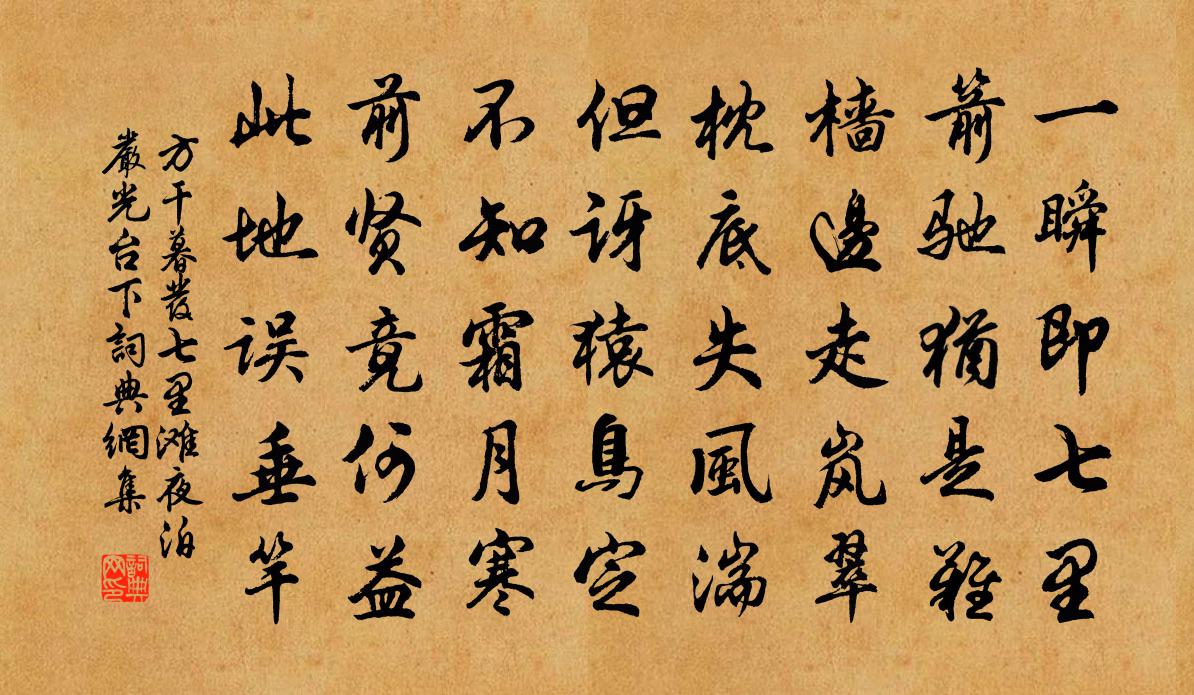 一瞬即七里
箭驰犹是难
樯邊走岚翠
枕底失風湍
但讶猿鳥定
不知霜月寒
前贤竟何益
此地误垂竿
方干暮發七里滩夜泊
嚴光台下詞典網集
詞典
网印